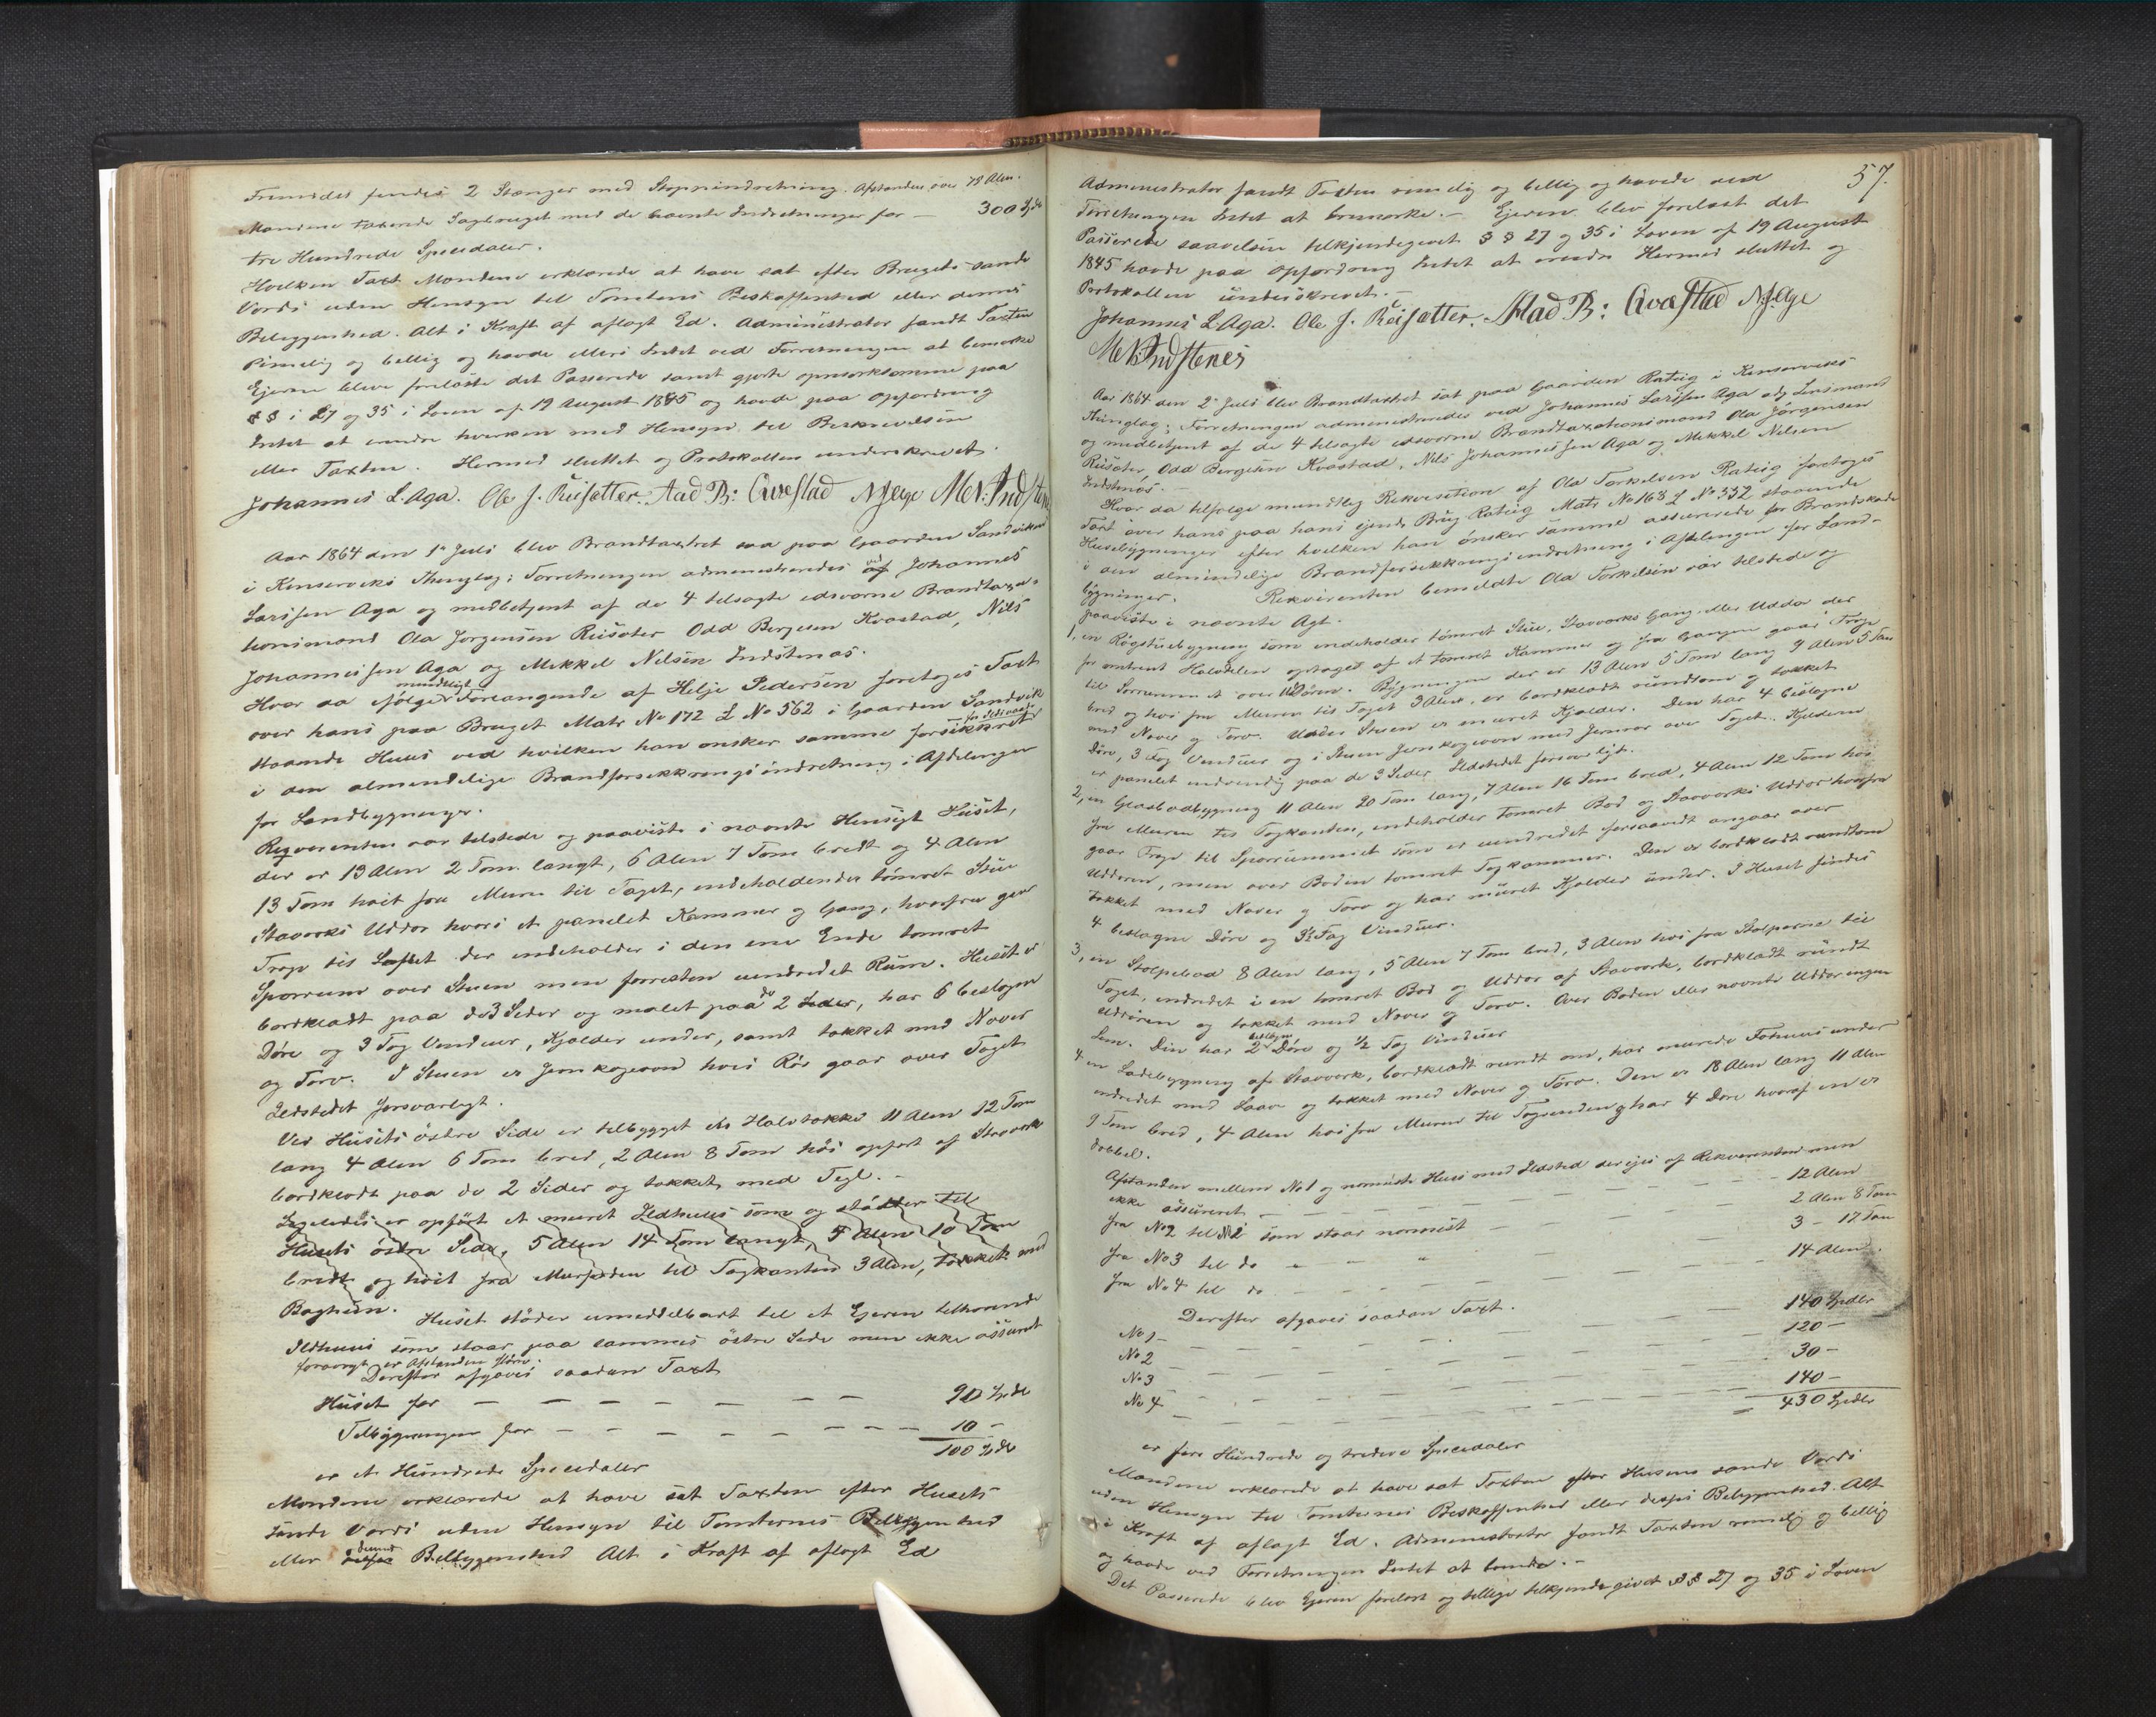 Fremdeles findes 2 Stænger med Stopnindretning. Afstanden over 79 Alen.
Mændene taxerede Sagbruget med de nævnte Indretninger for — 300 Spdr
tre Hundrede Speciedaler.
Hvilken Taxt Mændene erklærede at have sat efter Brugets sande
Værdi uden Hensyn til Tomtens Beskaffenhed eller dennes
Beliggenhed. Alt i Kraft af aflagt Ed. Administrator fandt Taxten
rimelig og billig og havde ellers Intet ved Forretningen at bemærke
Ejerne bleve forelæste det Passerede samt gjorte opmærksomme paa
§§ i 27 og 35 i Loven af 19 August 1845 og havde paa Opfordring
Intet at erindre hverken med Hensyn til Beskrivelsen
eller Taxten. Hermed sluttet og Protokollen underskrevet.
Johannes L. Aga. Ole J. Reisætter. Aad B: Qvæstad NJAge MN: Indsten
Aar 1864 den 1e Juli blev Brandtaxtret sat paa Gaarden Sandviken
i Kinserviks Thinglag; Forretningen administreredes ved af Johannes
Larssen Aga og medbetjent af de 4 tilsagte edsvorne Brandtaxa-
tionsmænd Ola Jørgensen Reisæter Odd Bergesen Kvæstad, Nils
Johannessen Aga og Mikkel Nilsen Indstenæs.
Hvor da ifølge mundtligt Forlangende af Helje Pedersen foretoges Taxt
over hans paa Bruget Matr No 172 L No 562 i Gaarden Sandvik
staaende Huus ved hvilken han ønsker samme forsikkret for Ildsvaade
i den almindelige Brandforsikkringsindretning i Afdelingen
for Landbygninger.
Reqvirenten var tilstede og paaviste i nævnte Hensigt Huset,
der er 13 Alen 2 Tom. langt, 6 Alen 7 Tom bredt og 4 Alen
13 Tom høit fra Muren til Taget, indeholdendes tømret Stue
Stavværks Uddør hvori et panelet Kammer og Gang, hvorfra gaar
Trap til Loftet der indeholder i den ene Ende tømret
Sparrum over Stuen men forresten uindredet Rum. Huset er
bordklædt paa de 3 Sider og malet paa de 2 Sider, har 6 beslagne
Døre og 3 Fag Vinduer, Kjælder under, samt tækket med Næver
og Torv. I Stuen er Jernkogeovn hvis Rør gaar over Taget
Ildstedet forsvarligt.
Ved Husets østre Side er tilbygget et Halvtække 11 Alen 12 Tom
lang 4 Alen 6 Tom bred, 2 Alen 8 Tom høi opført af Stavværk
bordklædt paa de 2 Sider og tækket med Tegl. —
Ligeledes er opført et muret Ildhuus som og støder til
Husets østre Side, 5 Alen 14 Tom langt, 5 Alen 10 Tom
bredt og høit fra Murfoden til Tagkanten 3 Alen, tækket med
Baghun. Huset støder umiddelbart til et Ejeren tilhørende
Ildhuus som staar paa sammes østre Side men ikke assuret
forøvrigt er Afstanden større.
Derefter afgaves saadan Taxt
Huset for — — — — — — — 90 Spdl
Tilbygningen for — — — — — — — 10 —
100 Spdr
er et Hundrede Speciedaler
Mændene erklærede at have sat Taxten efter Husets
sande Værdi uden Hensyn til Tomternes Beliggenhed
eller dennes Beliggenhed Alt i Kraft af aflagt Ed
57.
Administrator fandt Taxten rimelig og billig og havde ved
Forretningen Intet at bemærke. — Ejeren blev forelæst det
Passerede saavelsom tilkjendegivet §§ 27 og 35 i Loven af 19 August
1845 havde paa Opfordring Intet at erindre Hermed sluttet og
Protokollen underskrevet. —
Johannes L Aga. Ole J. Reisætter. Aad B: Qvæstad NJAge
MN Indstenes
Aar 1864 den 2e Juli blev Brandtaxtret sat paa Gaarden Ratvig i Kinserviks
Thinglag; Forretningen administreredes ved Johannes Larssen Aga adj Lensmand
og medbetjent af de 4 tilsagte edsvorne Brandtaxationsmænd Ola Jørgensen
Reisæter, Odd Bergesen Kvæstad, Nils Johannessen Aga og Mikkel Nilsen
Indstenæs. —
Hvor da tilfølge mundtlig Rekvisition af Ola Torkelsen Ratvig foretoges
Taxt over hans paa hans ejende Brug Ratvig Matr No 168 L No 552 staaende
Husebygninger efter hvilken han ønsker samme assurerede for Brandskade
i den almindelige Brandforsikkringsindretning i Afdelingen for Land-
bygninger. Rekvirenten bemeldte Ola Torkelsen var tilstede og
paaviste i nævnte Agt.
1, en Røgstuebygning som indeholder tømret Stue, Stavværks Gang eller Uddør der
for omtrent Halvdelen optages af et tømret Kammer og fra Gangen gaar Trap
til Sorrummet over Uddøren. Bygningen der er 13 Alen 5 Tom lang 9 Alen 5 Tom
bred og høi fra Muren til Taget 3 Alen, er bordklædt rundtom og tækket
med Næver og Torv. Under Stuen er muret Kjælder. Den har 4 beslagne
Døre, 3 Fag Vinduer og i Stuen Jernkogeovn med Jernrør over Taget. Kjelderen
er panelet indvendig paa de 3 Sider. Ildstedet forsvarligt.
2, en Glasbodbygning 11 Alen 20 Tom lang, 7 Alen 16 Tom bred, 4 Alen 12 Tom høi
fra Muren til Tagkanten, indeholder tømret Bod og Stavværks Uddør hvorfra
gaar Trap til Sparrummet som er uindredet forsaavidt angaar over
Uddøren, men over Boden tømret Tagkammer. Den er bordklædt rundtom
tækket med Næver og Torv og har muret Kjælder under. I Huset findes
4 beslagne Døre og 3½ Fag Vinduer.
3, en Stolpebod 8 Alen lang, 5 Alen 7 Tom bred, 3 Alen høi fra Stolperne til
Taget, indredet i en tømret Bod og Uddør af Stavværk, bordklædt rundt
Uddøren og tækket med Næver og Torv. Over Boden eller nævnte Uddør ingen
Lem. Den har 2 beslagne Døre og ½ Fag Vinduer
4 en Ladebygning af Stavværk, bordklædt rundt om, har murede Fæhuus under
indredet med Laave og tækket med Næver og Torv. Den er 18 Alen lang 11 Alen
9 Tom bred, 4 Alen høi fra Muren til Tagrenden og har 4 Døre hvoraf en er
dobbel.
Afstanden mellem No 1 og nærmeste Huus med Ildsted der ejes af Rekvirenten men
ikke assureret — — — — — — — 12 Alen
fra No 2 til No 1 som staar nærmest — — — 2 Alen 8 Tom
fra No 3 til do — — " — — 3 – 17 Tom
fra No 4 til do — — — — — 14 Alen.
Derefter afgaves saadan Taxt.
No 1 — — — — — — — 140 Spdlr
No 2 — — — — — — — 120 —
No 3 — — — — — — — 30 —
No 4 — — — — — — — 140 —
— 430 Spdlr
er fire Hundrede og tredive Speciedaler
Mændene erklærede at have sat Taxten efter Husenes sande Værdi
uden Hensyn til Tomternes Beskaffenhed eller disses Beliggenhed. Alt
i Kraft af aflagt Ed. Administrator fandt Taxten rimelig og billig
og havde ved Forretningen Intet at erindre. —
Det Passerede blev Ejeren forelæst og tillige tilkjendegivet §§ 27 og 35 i Loven